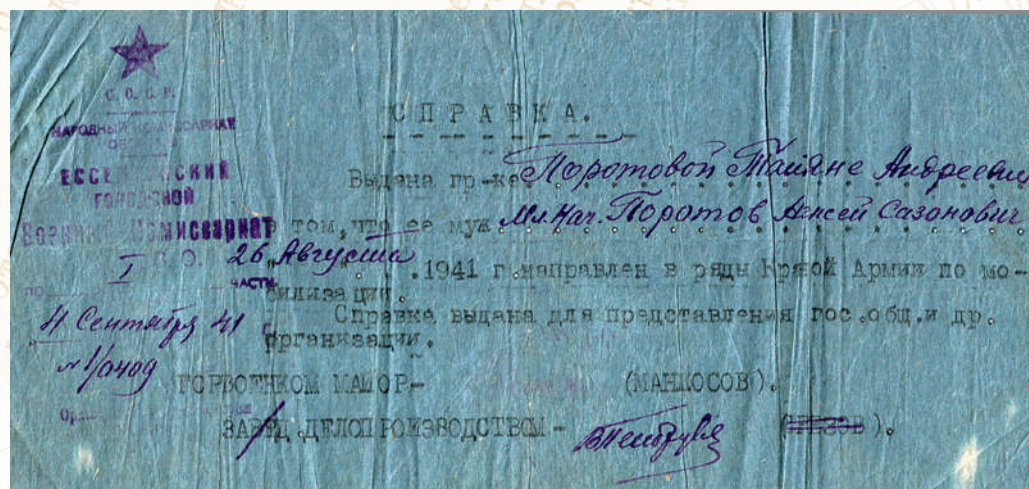 С. С. С. Р.
НАРОДНЫЙ КОМИССАРИАТ
ЕССЕНТУКСКИЙ
ГОРОДСКОЙ
Военный Комиссариат
I
ЧАСТИ
ПО
4 Сентября 41 г.
СПРАВКА.
Выдана гр-ке Поротовой Татьяне Андреевне
в том, что ее муж Мл.Нач. Поротов Алексей Сазонович
26 Августа 1941 г. направлен в ряды Кр﻿асной Армии по мо-
билизации.
Справка выдана для представления гос.общ.и др.
организации.
ГОРВОЕНКОМ МАЙОР- (МАНКОСОВ).
ЗАВЕД.ДЕЛОПРОИЗВОДСТВОМ -